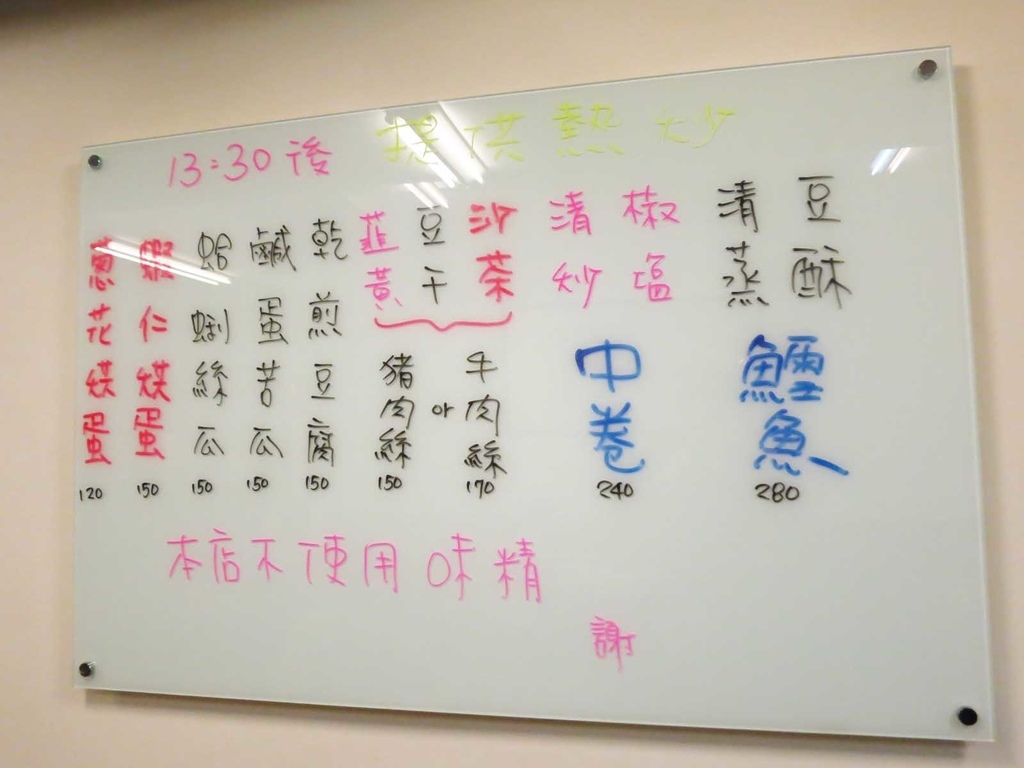 13:30後 提供熱炒
豆酥
清蒸
鱈魚
280
椒塩
清炒
中卷
240
沙茶
豆干
韮黃
牛肉絲
170
or
豬肉絲
150
乾煎豆腐
150
鹹蛋苦瓜
150
蛤蜊絲瓜
150
蝦仁烘蛋
150
蔥花烘蛋
120
本店不使用味精
謝